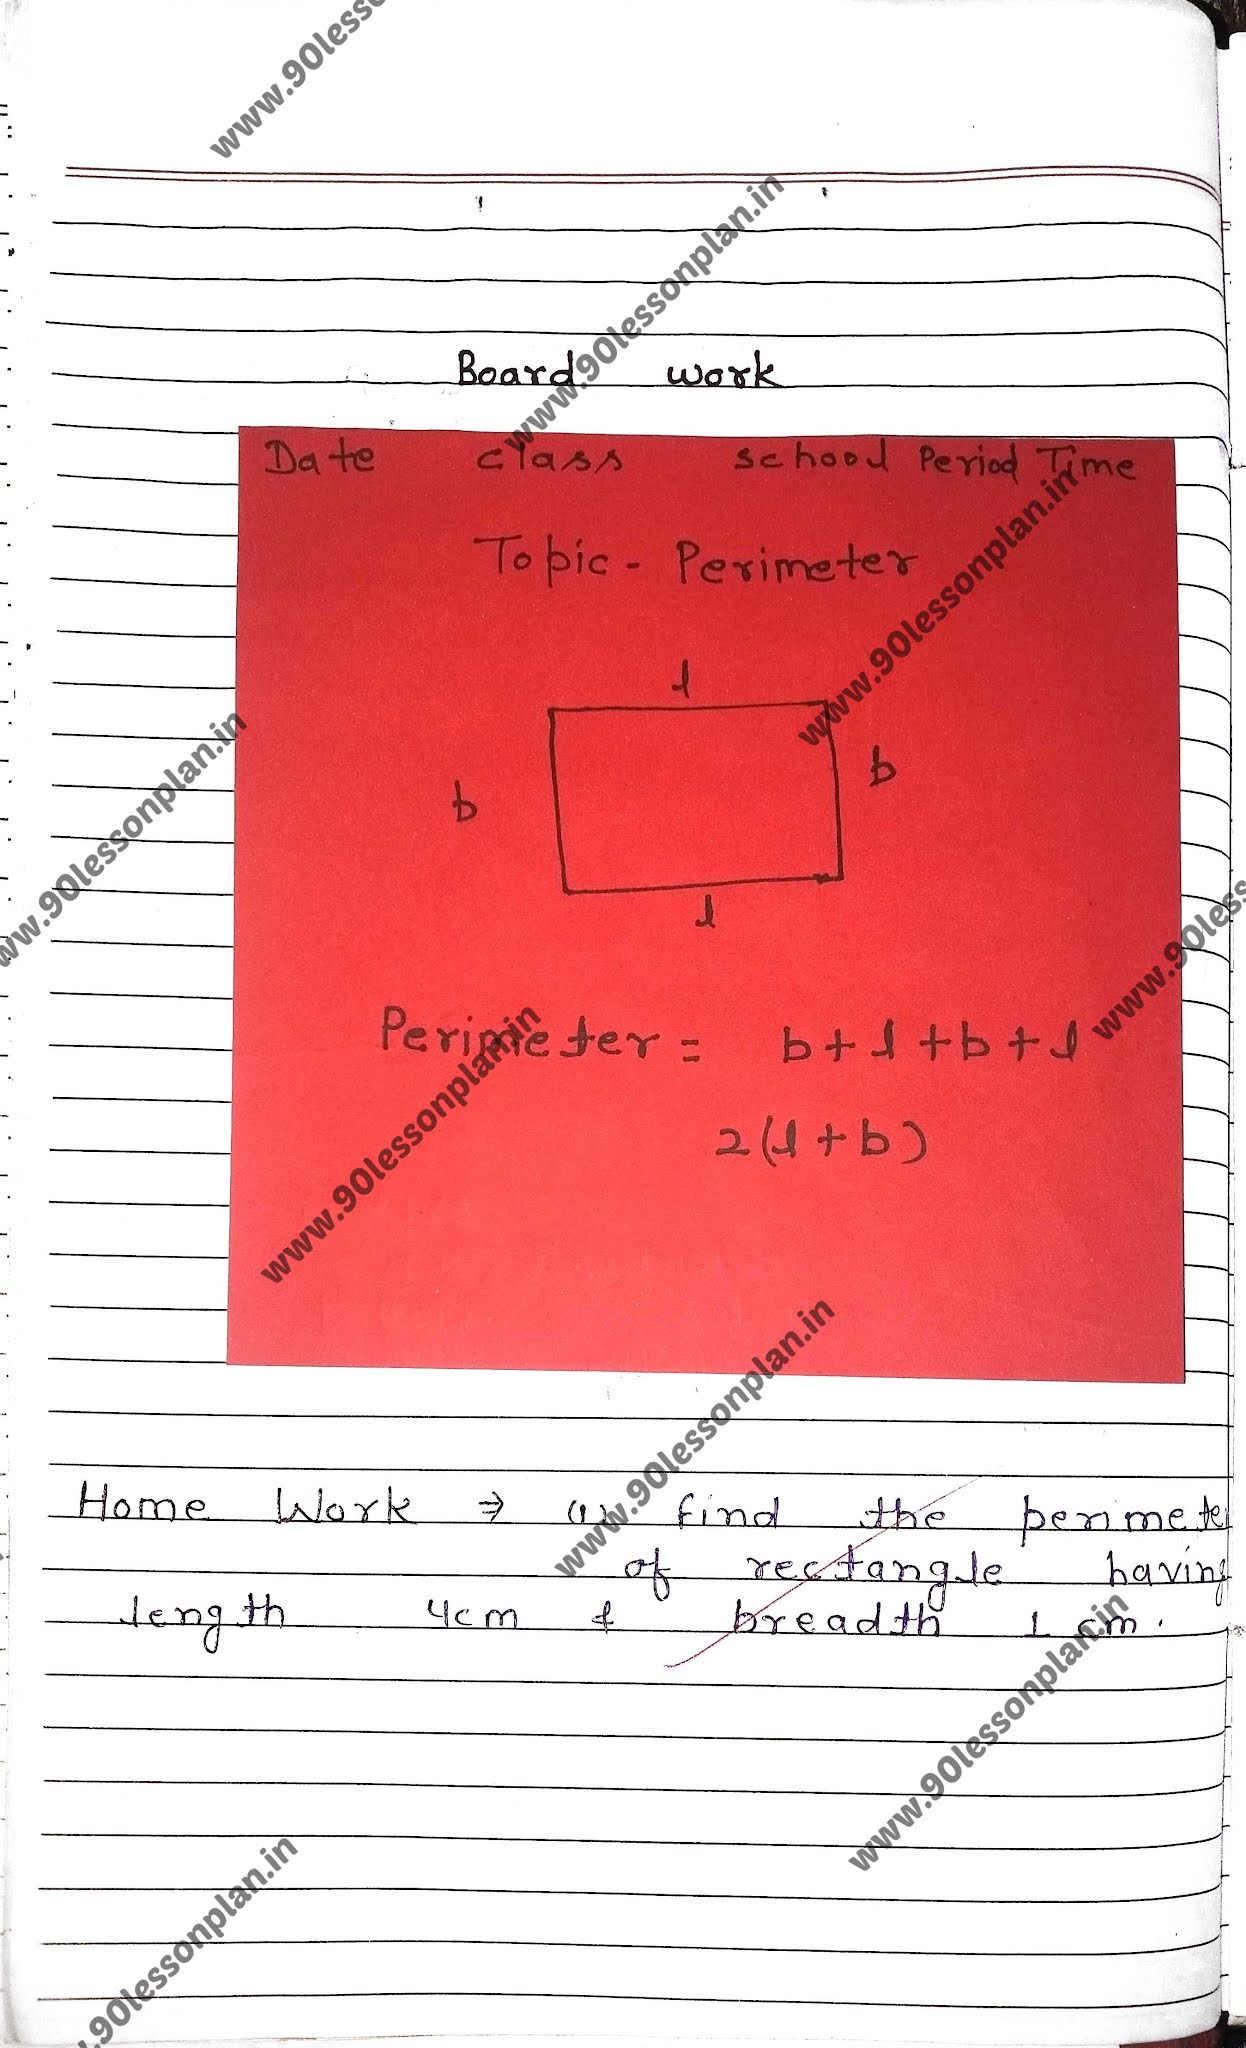 www.90lesson
www.90lessonplan.in
Board work
Date class school Period Time
Topic - Perimeter
www.90lessonplan.in
l
b b
l
www.90lessonplan.in
www.90less
Perimeter = b+l+b+l
2(l+b)
www.90lessonplan.in
www.90lessonplan.in
Home Work ⇒ (1) find the perimete
of rectangle having
length 4cm & breadth 1 cm.
www.90lessonplan.in
www.90lessonplan.in